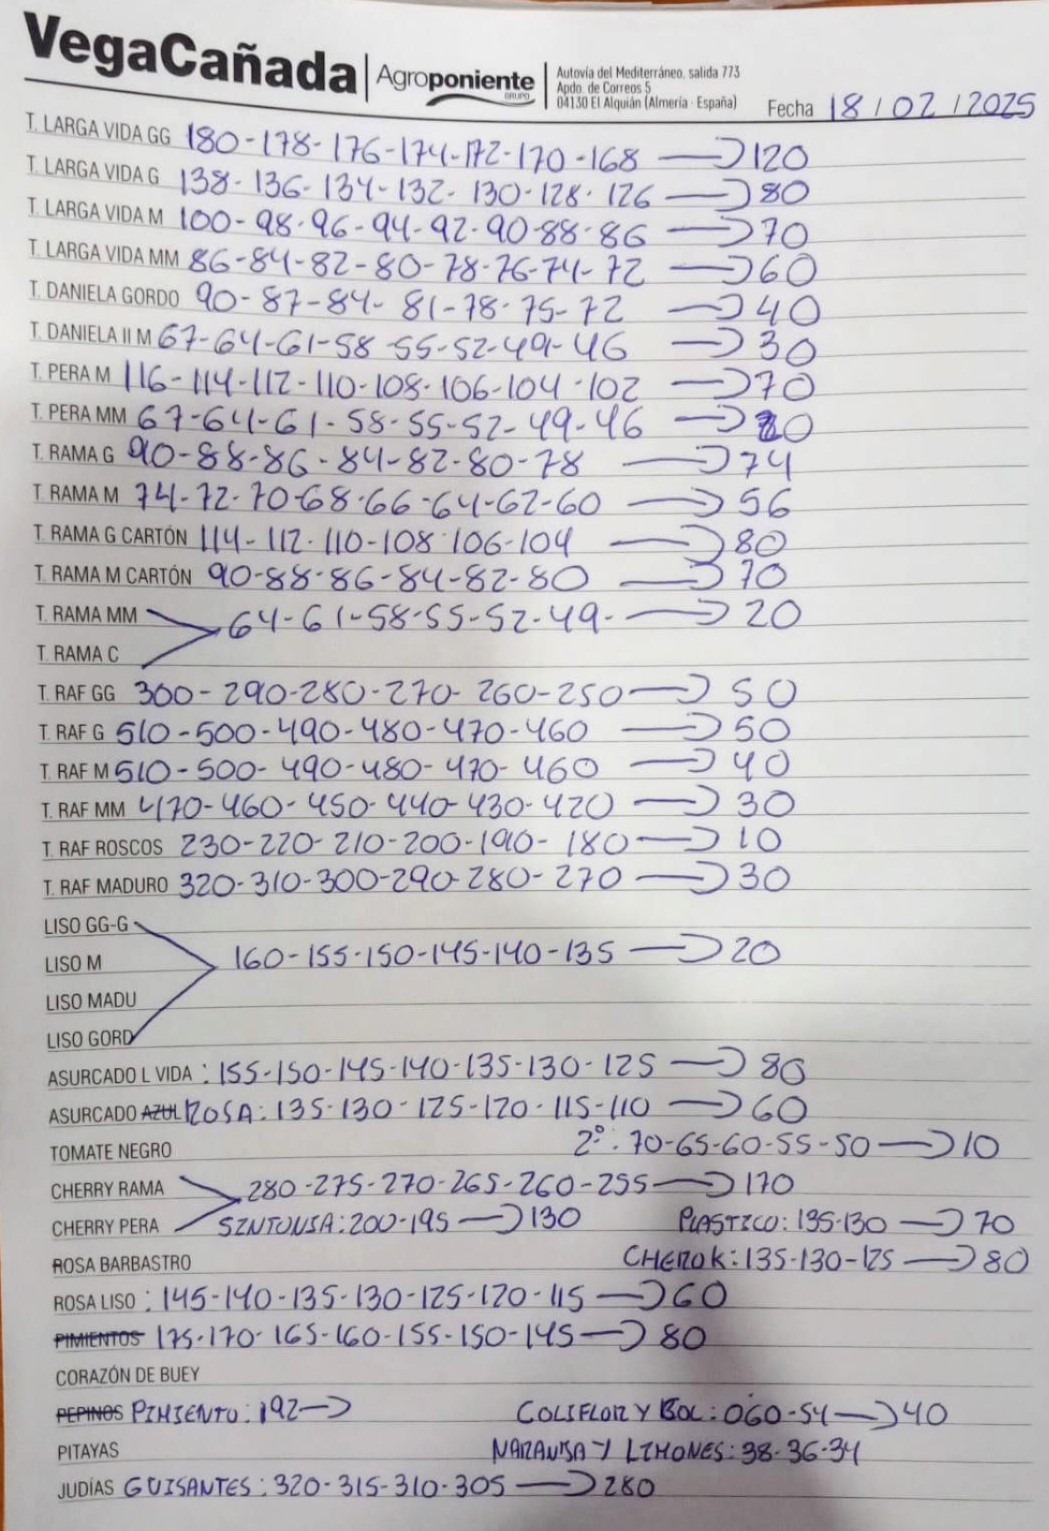 VegaCañada | Agroponiente GRUPO | Autovía del Mediterráneo, salida 773
Apdo. de Correos 5
04130 El Alquián (Almería · España)
Fecha 18/02/2025
T. LARGA VIDA GG 180-178-176-174-172-170-168 → 120
T. LARGA VIDA G 138-136-134-132-130-128-126 → 80
T. LARGA VIDA M 100-98-96-94-92-90-88-86 → 70
T. LARGA VIDA MM 86-84-82-80-78-76-74-72 → 60
T. DANIELA GORDO 90-87-84-81-78-75-72 → 40
T. DANIELA II M 67-64-61-58-55-52-49-46 → 30
T. PERA M 116-114-112-110-108-106-104-102 → 70
T. PERA MM 67-64-61-58-55-52-49-46 → 20
T. RAMA G 90-88-86-84-82-80-78 → 74
T. RAMA M 74-72-70-68-66-64-62-60 → 56
T. RAMA G CARTÓN 114-112-110-108-106-104 → 80
T. RAMA M CARTÓN 90-88-86-84-82-80 → 70
T. RAMA MM 64-61-58-55-52-49- → 20
T. RAMA C
T. RAF GG 300-290-280-270-260-250 → 50
T. RAF G 510-500-490-480-470-460 → 50
T. RAF M 510-500-490-480-470-460 → 40
T. RAF MM 470-460-450-440-430-420 → 30
T. RAF ROSCOS 230-220-210-200-190-180 → 10
T. RAF MADURO 320-310-300-290-280-270 → 30
LISO GG-G
LISO M 160-155-150-145-140-135 → 20
LISO MADU
LISO GORD
ASURCADO L VIDA : 155-150-145-140-135-130-125 → 80
ASURCADO AZUL ROSA: 135-130-125-120-115-110 → 60
TOMATE NEGRO 2º: 70-65-60-55-50 → 10
CHERRY RAMA 280-275-270-265-260-255 → 170
CHERRY PERA SINTONIA: 200-195 → 130 PLASTICO: 135-130 → 70
ROSA BARBASTRO CHEROK: 135-130-125 → 80
ROSA LISO : 145-140-135-130-125-120-115 → 60
PIMIENTOS 175-170-165-160-155-150-145 → 80
CORAZÓN DE BUEY
PEPINOS PIMIENTO: 192 → COLIFLOR Y BOL: 060-54 → 40
PITAYAS NARANJA Y LIMONES: 38-36-34
JUDÍAS GUISANTES: 320-315-310-305 → 280